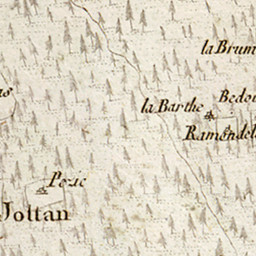 la Brum
la Barthe
Bedou
Ramondel
Jottan